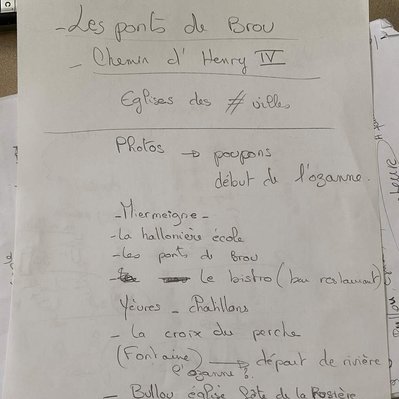 - Les ponts de Brou
- Chemin d' Henry IV
Eglises des # villes
Photos → poupons
début de l'ozanne.
- Miermaigne -
- la hallonière école
- Les ponts de Brou
- le bistro (bar restaurant)
Yèvres - Chatillons
- La croix du perche
(Fontaine) → départ de rivière
l'ozanne ?.
- Bullou église fête de la Rosière